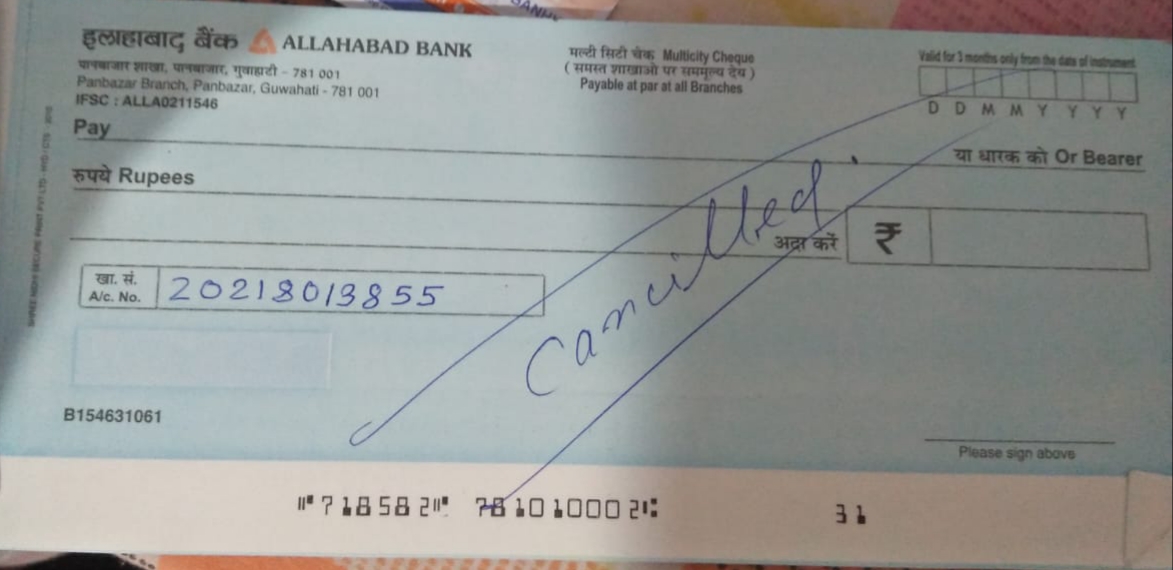 इलाहाबाद बैंक ALLAHABAD BANK
पानबाजार शाखा, पानबाजार, गुवाहाटी - 781 001
Panbazar Branch, Panbazar, Guwahati - 781 001
IFSC : ALLA0211546
मल्टी सिटी चेक Multicity Cheque
( समस्त शाखाओ पर सममूल्य देय )
Payable at par at all Branches
Valid for 3 months only from the date of instrument
D D M M Y Y Y Y
Pay
या धारक को Or Bearer
रुपये Rupees
अदा करें ₹
खा. सं.
A/c. No. 20218013855
Cancilled
B154631061
Please sign above
⑈718582⑈ 781010002⑆ 31